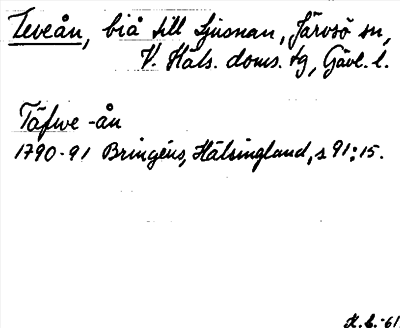 Teveån, biå till Ljusnan, Järvsö sn,
V. Häls. doms. tg, Gävl. l.
Täfwe-ån
1790-91 Bringéus, Hälsingland, s 91:15.
K.L.-61